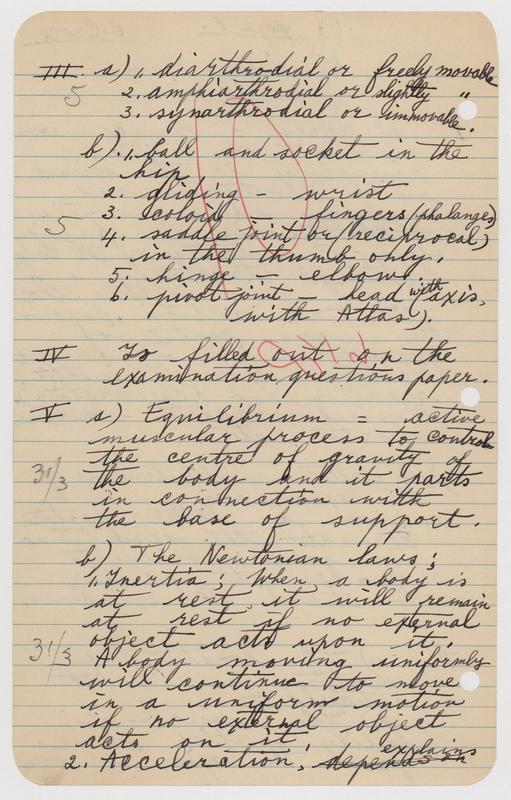 III. a) 1. diarthrodial or freely movable
5
2. amphiarthrodial or slightly "
3. synarthrodial or immovable.
b). 1. ball and socket in the
hip
2. gliding - wrist
5
3. coloid - fingers (phalanges)
4. saddle joint or (reciprocal)
in the thumb only.
5. hinge - elbow.
6. pivot joint - head with axis,
with Atlas).
IV Is filled out on the
examination questions paper.
V a) Equilibrium = active
muscular process to control
the centre of gravity of
3 1/3
the body and it parts
in connection with
the base of support.
b) The Newtonian laws;
1. Inertia; When a body is
at rest it will remain
at rest if no external
object acts upon it.
3 1/3
A body moving uniformly
will continue to move
in a uniform motion
if no external object
acts on it.
2. Acceleration, depends on explains